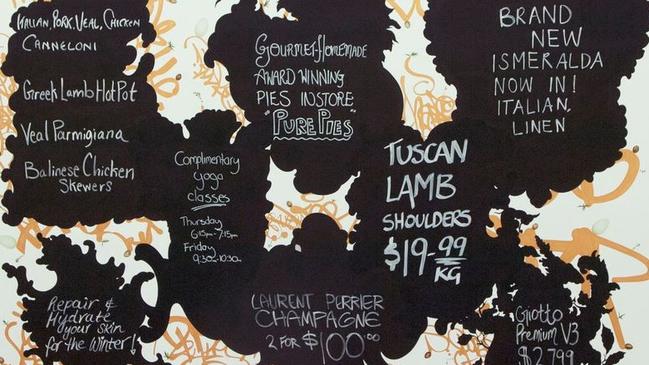 Italian, Pork, Veal, Chicken
Canneloni
Greek Lamb Hot Pot
Veal Parmigiana
Balinese Chicken
Skewers
Gourmet-Homemade
AWARD WINNING
PIES IN STORE
"PURE PIES"
BRAND
NEW
ISMERALDA
NOW IN!
ITALIAN,
LINEN
Complimentary
yoga
classes
Thursday
6:15am-7:15am
Friday
9:30am-10:30am
TUSCAN
LAMB
SHOULDERS
$19-99
KG
Repair &
Hydrate
your skin
for the Winter!
LAURENT PERRIER
CHAMPAGNE
2 FOR $100.00
Giotto
Premium V3
$2799